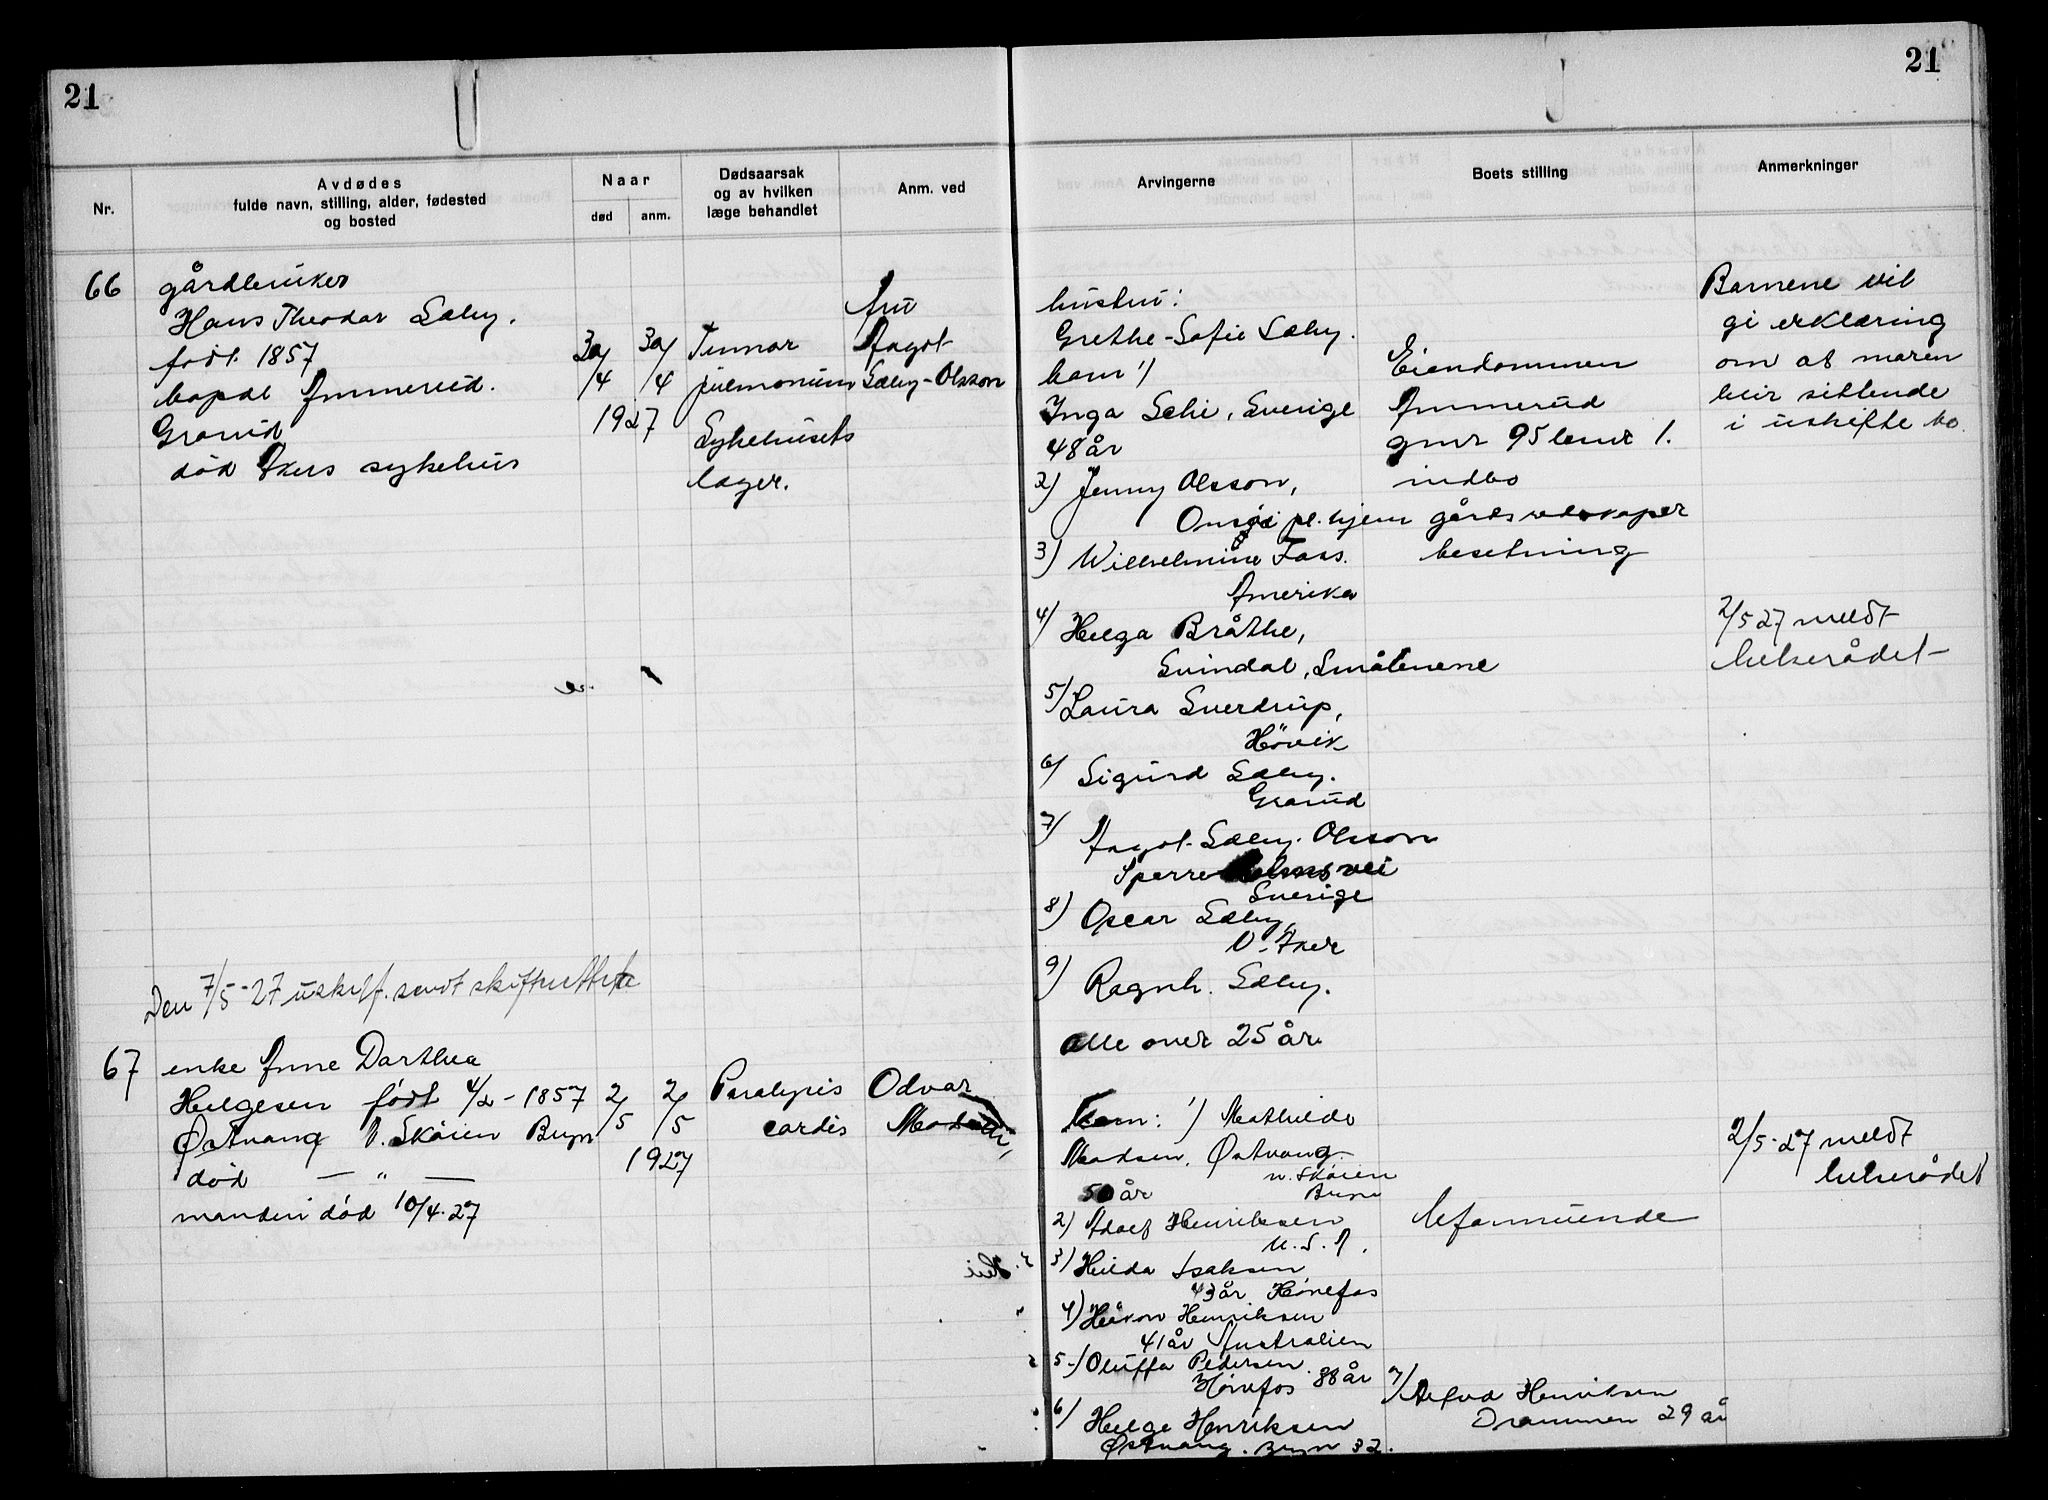 21
21
Nr.
Avdødes
fulde navn, stilling, alder, fødested
og bosted
Naar
død
anm.
Dødsaarsak
og av hvilken
læge behandlet
Anm. ved
Arvingerne
Boets stilling
Anmerkninger
66
gårdbruker
Hans Theodor Sæby.
født 1857
bopæl Ammerud.
Grorud
død Akers sykehus
30/4
30/4
1927
Tumor
pulmonum
Sykehusets
læger.
fru
Aagot
Sæby-Olsson
hustru:
Grethe-Sofie Sæby.
barn 1)
Inga Sehi, Sverige
48 år
2) Jenny Olsson,
Onsøi pl.hjem
3) Wilhelmine
Amerika
4) Helga Bråthe,
Svindal, Smålenene
5) Laura Sverdrup,
Hövik
6) Sigurd Sæby.
Grorud
7)
Aagot Sæby-Olsson
Sperre vei
Sverige
8) Oscar Sæby,
V. Aker
9) Ragnh. Sæby.
alle over 25 år.
Eiendommen
Ammerud
gnr 95 bnr 1.
indbo
gårdsredskaper
besetning
Barnene vil
gi erklæring
om at moren
blir sittende
i uskifte bo.
2/5 27 meldt
helserådet
Den 7/5-27 uskift. sendt skifteretten
67
enke Anne Dorthea
Helgesen født 4/2-1857
Østvang V. Skøien Bryn
død — " —
manden død 10/4.27
2/5
2/5
1927
Paralysis
cordis
Odvar
Madsen,
barn: 1) Mathilde
Madsen, Østvang
v. Skøien
Bryn
50 år
2) Adolf Henriksen
U.S.A.
3) Hilda Isaksen
43 år Hønefos
4) Håkon Henriksen
41 år Australien
5-) Oluffa Pedersen
Hønefos 38 år
6)
Helge Henriksen
Østvang. Bryn 32.
7) Henriksen
Drammen 29 år
uformuende
2/5-27 meldt
helserådet